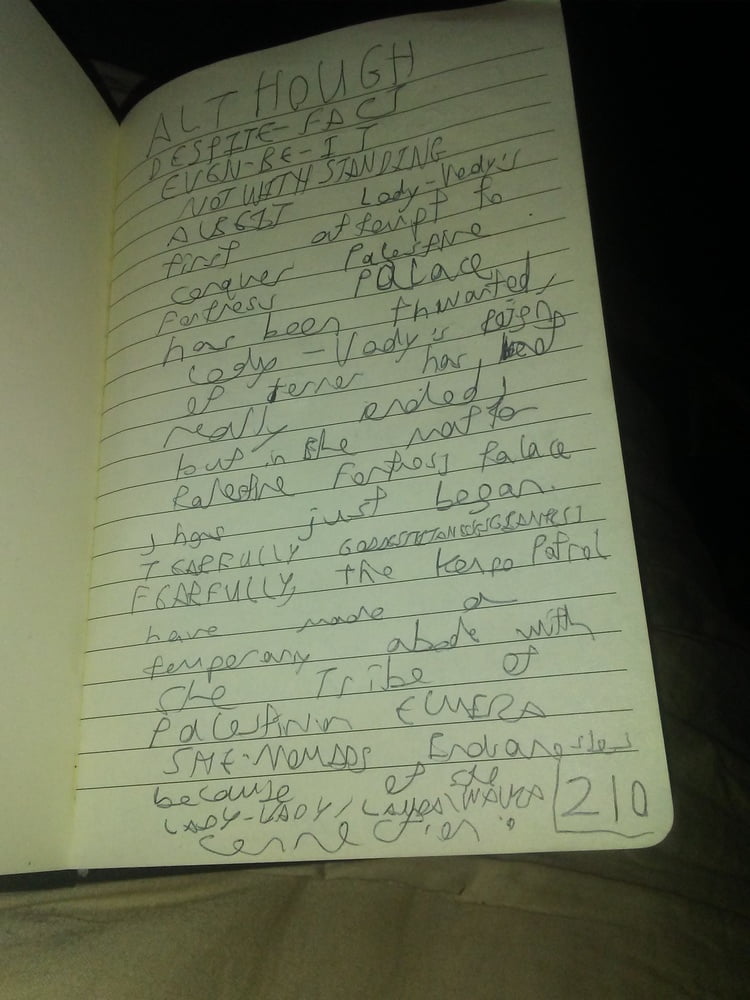 ALTHOUGH
DESPITE-FACT
EVEN-BE-IT
NOTWITHSTANDING
ALBEIT Lady-Vady's
first attempt to
conquer Palestine
Fortress PALACE
has been thwarted,
Lady-Vady's reign
of terror has not
really ended,
but in the matter
Palestine Fortress Palace
has just began.
TEARFULLY
FEARFULLY, the Kenpo Patrol
have made a
temporary abode with
the Tribe of
Palestinin
SHE-NOMADS
because of the
LADY-VADY/
connection.
210